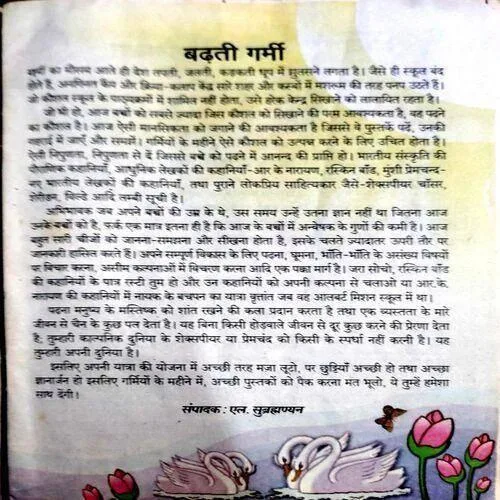 बढ़ती गर्मी
गर्मी का मौसम आते ही देश तपती, जलती, कड़कती धूप में झुलसने लगता है। जैसे ही स्कूल बंद
होते है, अनगिनत कैंप और क्रिया-कलाप केंद्र सारे शहर और कस्बों में मशरूम की तरह पनप उठते है।
जो कौशल स्कूल के पाठ्यक्रमों में शामिल नहीं होता, उसे हरेक केन्द्र सिखाने को लालायित रहता है।
जो भी हो, आज बच्चों को सबसे ज्यादा जिस कौशल को सिखाने की परम आवश्यकता है, वह पढने
का कौशल है। आज ऐसी मानसिकता को जगाने की आवश्यकता है जिससे वे पुस्तकें पढें, उनकी
गहराई में जाएँ और समझें। गर्मियों के महीने ऐसे कौशल को उत्पन्न करने के लिए उचित होता है।
ऐसी निपुणता, निपुणता से दें जिससे बच्चे को पढने में आनन्द की प्राप्ति हो। भारतीय संस्कृति की
पौराणिक कहानियाँ, आधुनिक लेखकों की कहानियाँ-आर के नारायण, रस्किन बाँड, मुंशी प्रेमचन्द-
नए भारतीय लेखकों की कहानियाँ, तथा पुराने लोकप्रिय साहित्यकार जैसे-शेक्सपीयर चॉसर,
शेरीडन, फिल्डे आदि लम्बी सूची है।
अभिभावक जब अपने बच्चों की उम्र के थे, उस समय उन्हें उतना ज्ञान नहीं था जितना आज
उनके बच्चों को है, फर्क एक मात्र इतना ही है कि आज के बच्चों में अन्वेषक के गुणों की कमी है। आज
बहुत सारी चीजों को जानना-समझना और सीखना होता है, इसके चलते ज्यादातर ऊपरी तौर पर
जानकारी हासिल करते हैं। अपने सम्पूर्ण विकास के लिए पढना, घूमना, भाँति-भाँति के असंख्य विषयों
पर विचार करना, असीम कल्पनाओं में विचरण करना आदि एक पक्का मार्ग है। जरा सोचो, रस्किन बाँड
की कहानियों के पात्र रस्टी तुम हो और उन कहानियों को अपनी कल्पना से चलाओ या आर.के.
नारायण की कहानियों में नायक के बचपन का यात्रा वृत्तांत जब वह आलबर्ट मिशन स्कूल में था।
पढना मनुष्य के मस्तिष्क को शांत रखने की कला प्रदान करता है तथा एक व्यस्तता के मारे
जीवन से चैन के कुछ पल देता है। यह बिना किसी होड़वाले जीवन से दूर कुछ करने की प्रेरणा देता
है; तुम्हारी काल्पनिक दुनिया के शेक्सपीयर या प्रेमचंद को किसी के स्पर्धा नहीं करनी है। यह
तुम्हारी अपनी दुनिया है।
इसलिए अपनी यात्रा की योजना में अच्छी तरह मजा लूटो, पर छुट्टियाँ अच्छी हो तथा अच्छा
ज्ञानार्जन हो इसलिए गर्मियों के महीने में, अच्छी पुस्तकों को पैक करना मंत भूलो, ये तुम्हें हमेशा
साथ देंगी।
संपादक : एल. सुब्रह्मण्यन